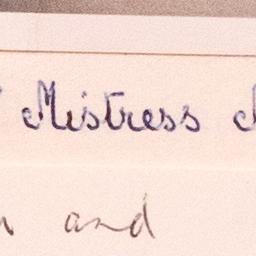 Mistress
and